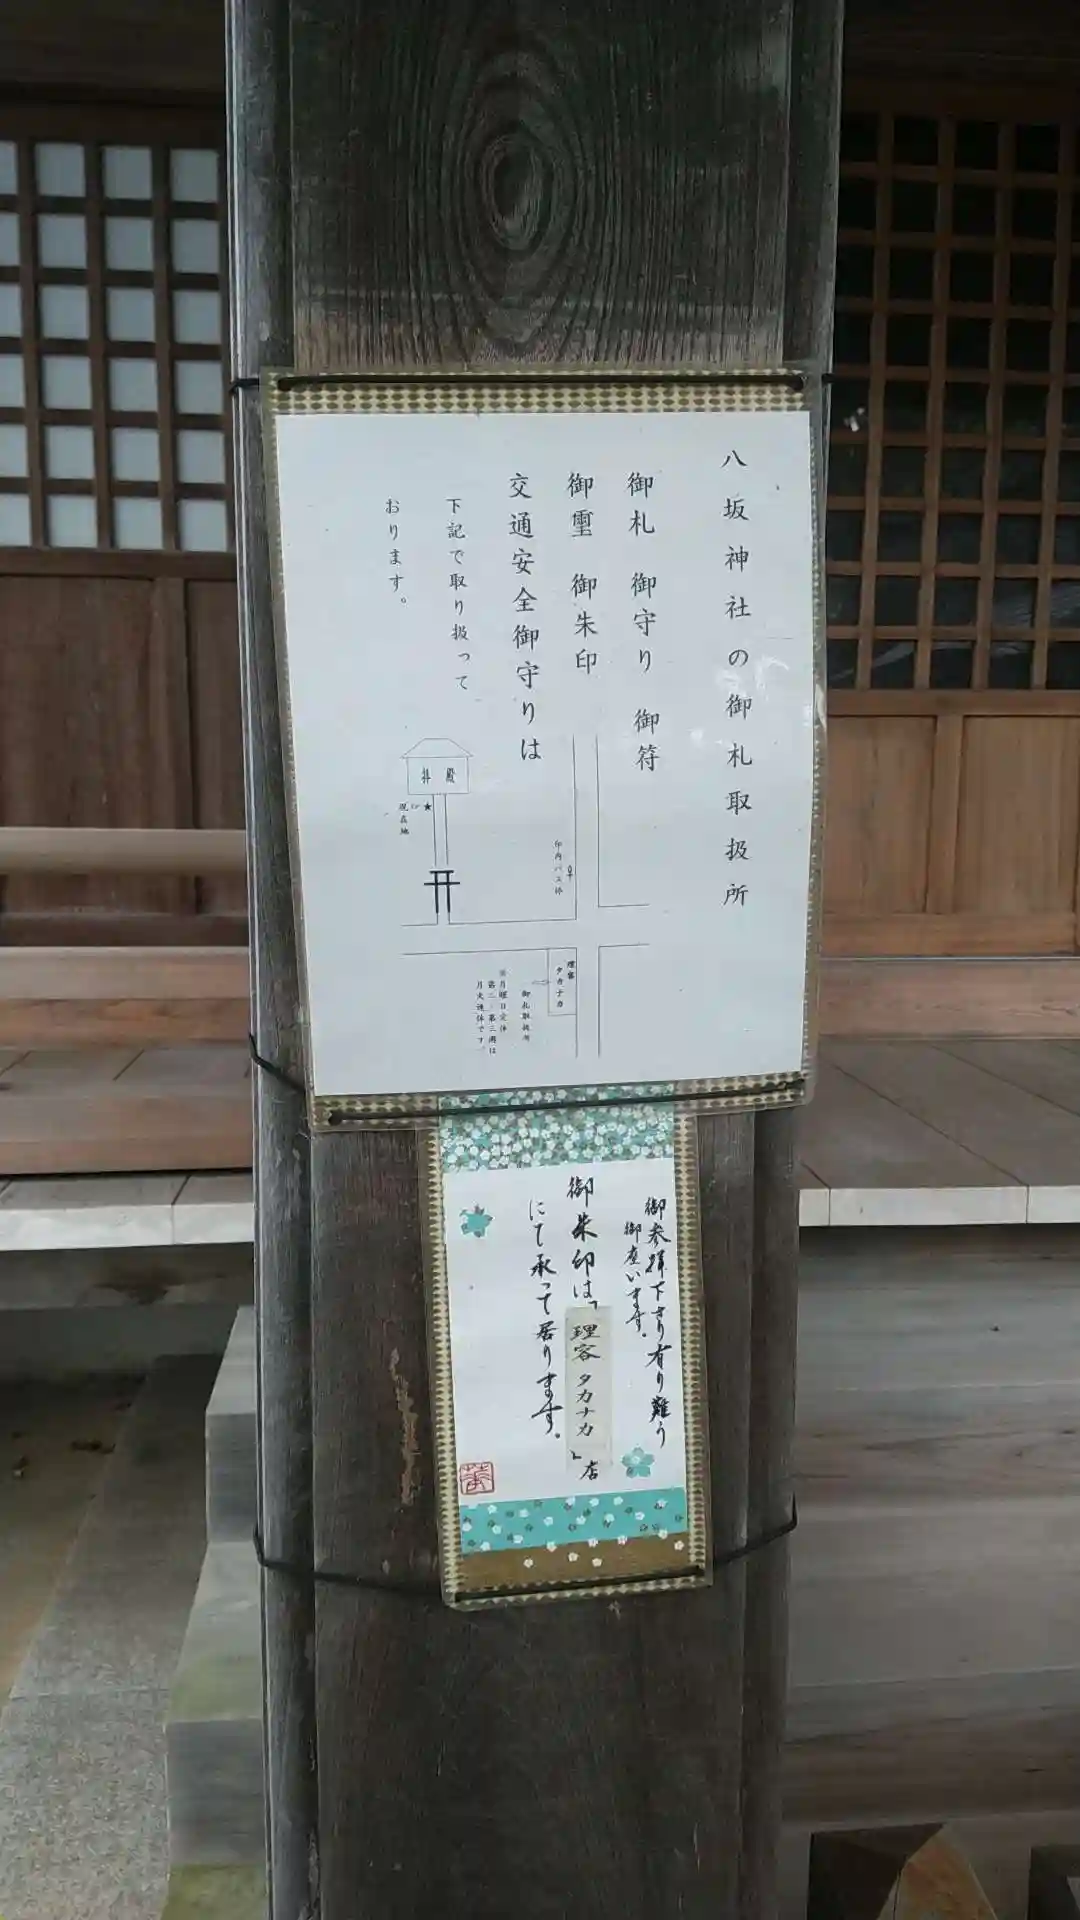 八坂神社の御札取扱所
御札 御守り 御符
御璽 御朱印
交通安全御守りは
下記で取り扱って
おります。
拝殿
現在地
★
印内バス停
理容
タカナカ
御札取扱所
※月曜日定休
第二・第三週は
月火連休です。
御参拝下さり有り難う
御座います。
御朱印は「理容タカナカ」店
にて承って居ります。